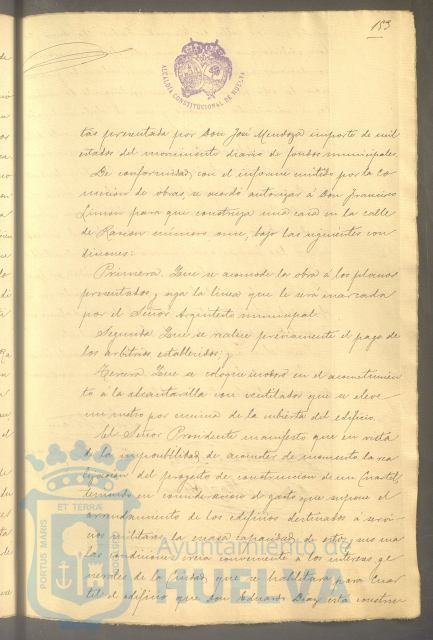 153
ALCALDÍA CONSTITUCIONAL DE HUELVA
tas presentada por Don José Mendoza importe de mil
estados del movimiento diario de fondos municipales.
De conformidad con el informe emitido por la Co
misión de obras, se acordó autorizar á Don Francisco
Limon para que construya una casa en la calle
de Rascon número once, bajo las siguientes con
diciones:
Primera Que se acomode la obra á los planos
presentados, y siga la linea que le será marcada
por el Señor Arquitecto municipal.
Segunda Que se realice previamente el pago de
los arbitrios establecidos; y
Tercera Que se coloque inodoro en el acometimien
to á la alcantarilla con ventilador que se eleve
un metro por encima de la cubierta del edificio.
El Señor Presidente manifestó que en vista
de la imposibilidad de acometer de momento la rea
lizacion del proyecto de construccion de un Cuartel,
teniendo en consideracion el gasto que supone el
arrendamiento de los edificios destinados á servi
cios militares, la escasa capacidad de estos y sus ma
las condiciones, creia conveniente á los intereses ge
nerales de la Ciudad, que se habilitara para Cuar
tel el edificio que Don Eduardo Diaz está constru
PORTUS MARIS ET TERRAE
Ayuntamiento de
HUELVA